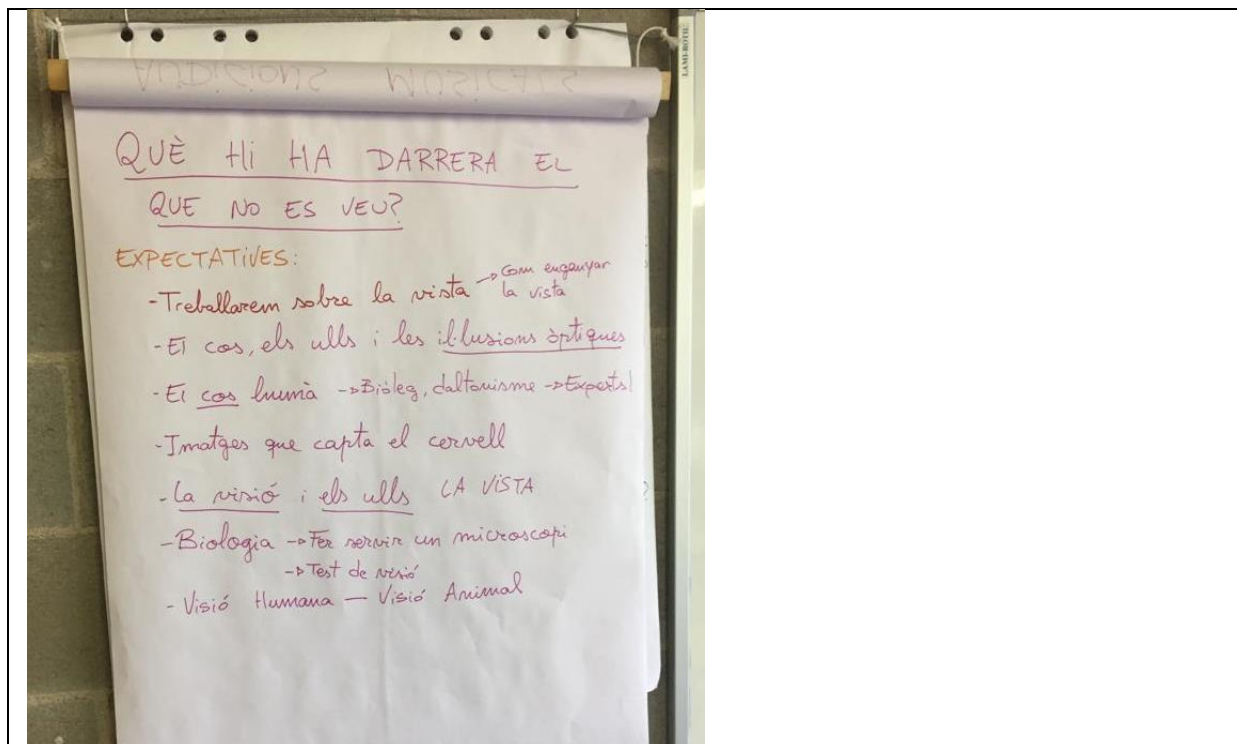 AUDICIONS MUSICALS
LAMI-ROTUL
QUÈ Hi HA DARRERA EL
QUE NO ES VEU?
EXPECTATiVES:
-Treballarem sobre la vista → Com enganyar
la vista
-El cos, els ulls i les il·lusions òptiques
-El cos humà → Biòleg, daltonisme → Experts!
-Imatges que capta el cervell
-La visió i els ulls LA ViSTA
-Biologia → Fer servir un microscopi
→ Test de visió
- Visió Humana — Visió Animal